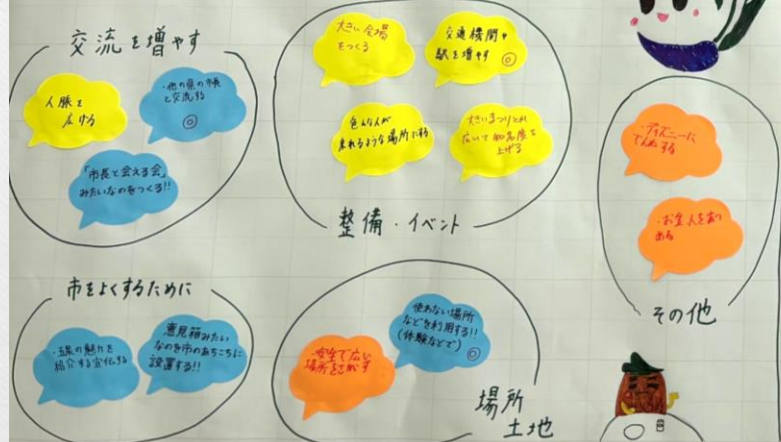 交流を増やす
人脈を
広げる
・他の県の市長
と交流する
◎
「市長と会える会」
みたいなのをつくる!!
大きい会場
をつくる
交通機関や
駅を増やす
◎
色んな人が
来れるような場所にする
大きいまつりとか
広いて知名度を
上げる
整備・イベント
ディズニーに
でんわする
・お金
その他
市をよくするために
・五泉の魅力を
紹介する宣伝する
意見箱みたい
なのを市のあちこちに
設置する!!
・安全で広い
場所をさがす
使わない場所
などを利用する!!
(体験などで)
◎
場所
土地